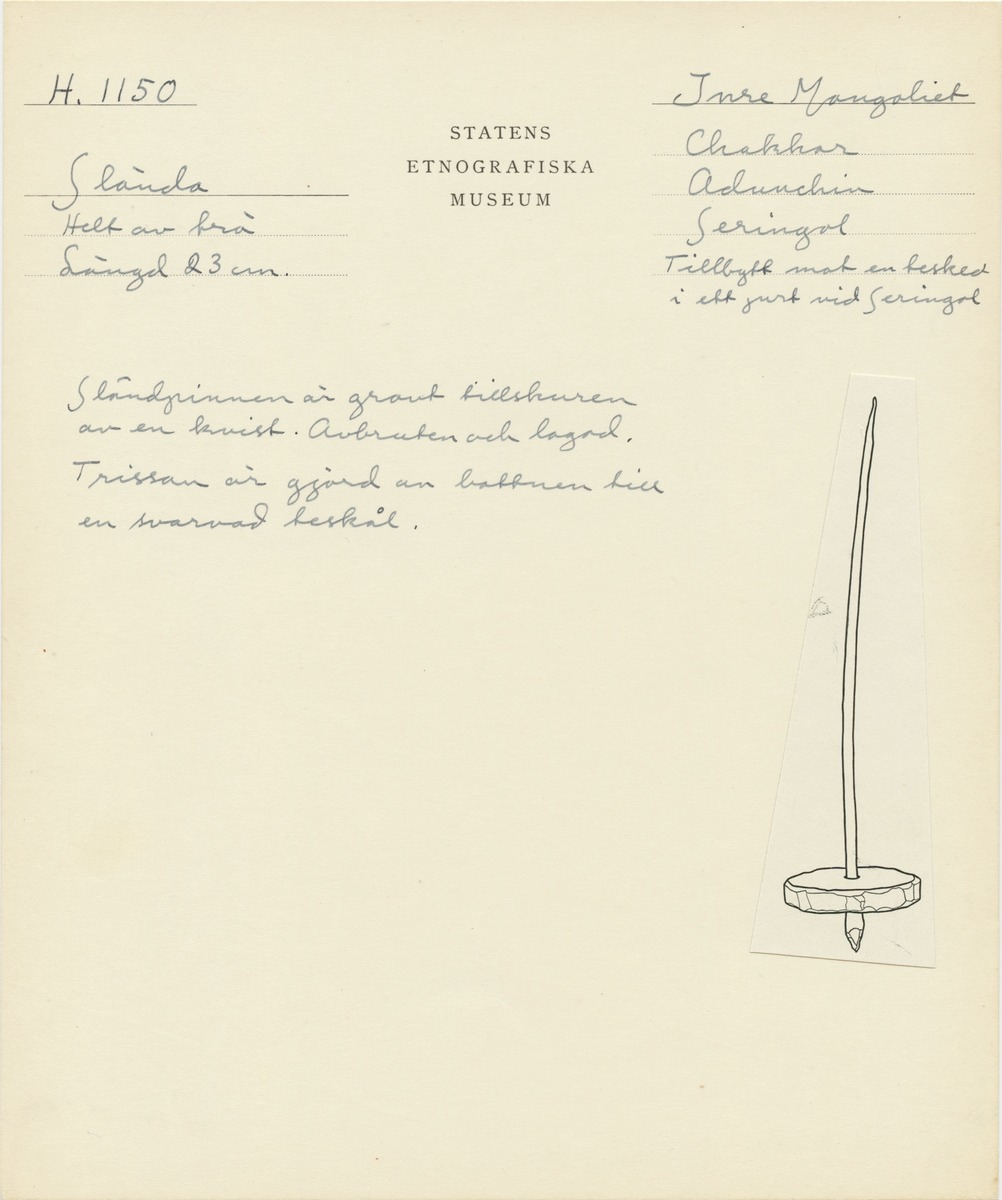 H. 1150
Slända
Helt av trä
Längd 23 cm.
STATENS
ETNOGRAFISKA
MUSEUM
Inre Mongoliet
Chakhar
Adunchin
Seringol
Tillbytt mot en tesked
i ett jurt vid Seringol
Sländpinnen är grovt tillskuren
av en kvist. Avbruten och lagad.
Trissan är gjord av bottnen till
en svarvad teskål.